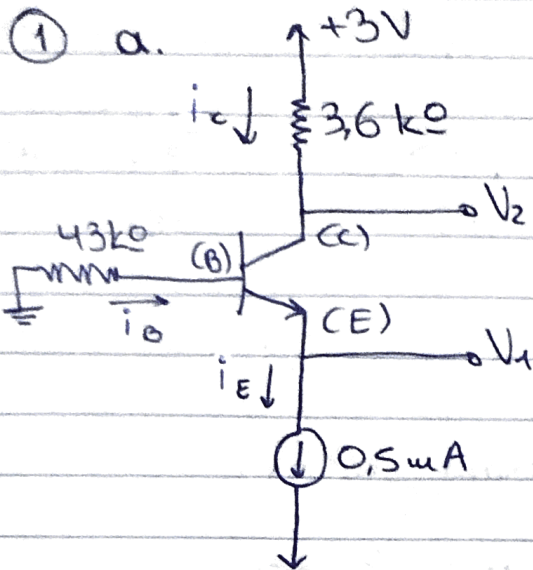 1 a.
+3V
ic
3,6 kΩ
V2
43kΩ
(B)
(C)
iB
(E)
V1
iE
0,5mA